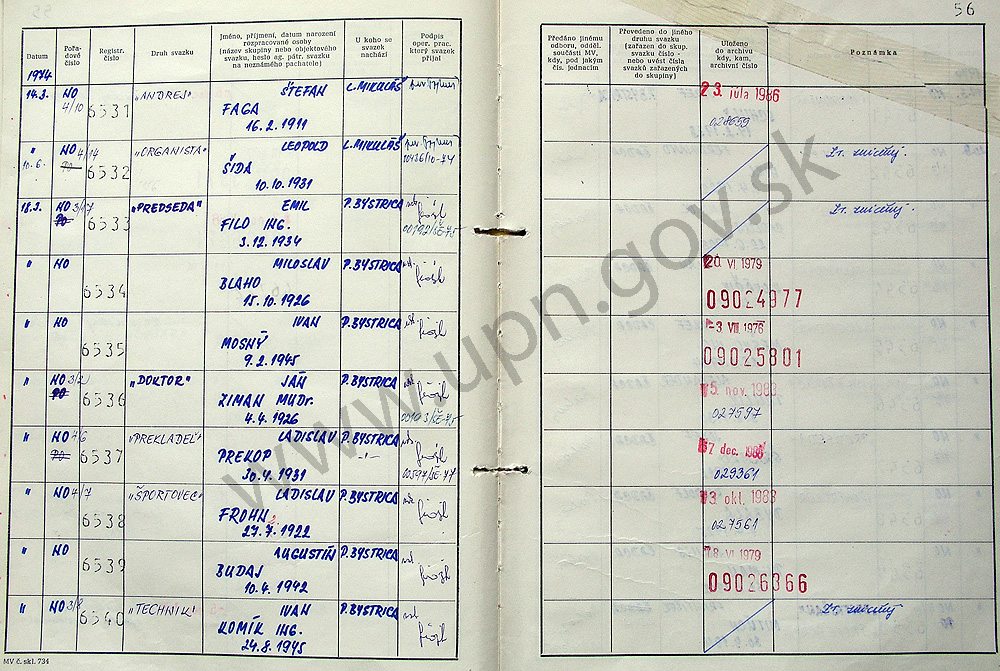 56
Datum
Pořa-
dové
číslo
Registr.
číslo
Druh svazku
Jméno, příjmení, datum narození
rozpracované osoby
(název skupiny nebo objektového
svazku, heslo ag. pátr. svazku
na neznámého pachatele)
U koho se
svazek
nachází
Podpis
oper. prac.
který svazek
přijal
Předáno jinému
odboru, odděl.
součásti MV,
kdy, pod jakým
čís. jednacím
Převedeno do jiného
druhu svazku
(zařazen do skup.
svazku číslo -
nebo uvést čísla
svazků zařazených
do skupiny)
Uloženo
do archivu
kdy, kam,
archivní číslo
Poznámka
1974
14.3. NO 4/10 6531 "ANDREJ" ŠTEFAN L. MIKULÁŠ
FAGA
16.2.1911
23. júla 1986
028659
" 10.6. NO 4/14 6532 "ORGANISTA" LEOPOLD L. MIKULÁŠ
ŠÍDA
10.10.1931
00436/10-74
18.3. NO 3/17 6533 "PREDSEDA" EMIL P. BYSTRICA
FILO ING.
3.12.1934
00192/SE-75
" NO 6534 MILOSLAV P. BYSTRICA
BLAHO
15.10.1926
20. VI 1979
09024977
" NO 6535 IVAN P. BYSTRICA
MOSNÝ
9.2.1945
-3 VIII. 1976
09025801
" NO 3/2 6536 "DOKTOR" JÁN P. BYSTRICA
ZIMAN MUDr.
4.4.1926
5. nov. 1983
027597
" NO 4/6 6537 "PREKLADEĽ" LADISLAV P. BYSTRICA
PREKOP -"-
30.4.1931
00597/SE-77
7 dec. 1988
029361
" NO 4/7 6538 "ŠPORTOVEC" LADISLAV P. BYSTRICA
FROHN
27.7.1922
3 okt. 1983
027561
" NO 6539 AUGUSTÍN P. BYSTRICA
BUDAJ
10.4.1942
VI 1979
09026366
" NO 3/8 6540 "TECHNIK" IVAN P. BYSTRICA
KOMÍK ING.
24.8.1945
MV č. skl. 734
www.upn.gov.sk